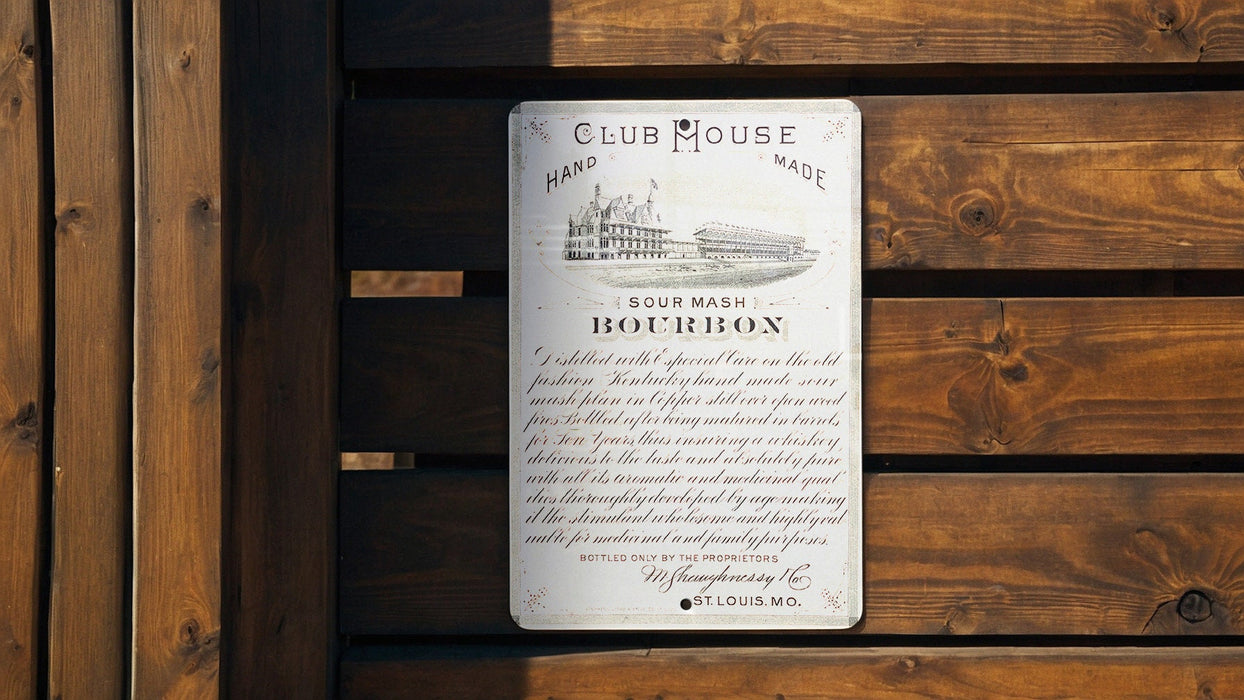 CLUB HOUSE
HAND MADE
SOUR MASH
BOURBON
Distilled with Especial Care on the old
fashion Kentucky hand made sour
mash plan in Copper still over open wood
fires Bottled after being matured in barrels
for Ten Years, thus insuring a whiskey
delicious to the taste and absolutely pure
with all its aromatic and medicinal qual
ities thoroughly developed by age making
it the stimulant wholesome and highly val
uable for medicinal and family purposes.
BOTTLED ONLY BY THE PROPRIETORS
M Shaughnessy & Co
ST. LOUIS, MO.